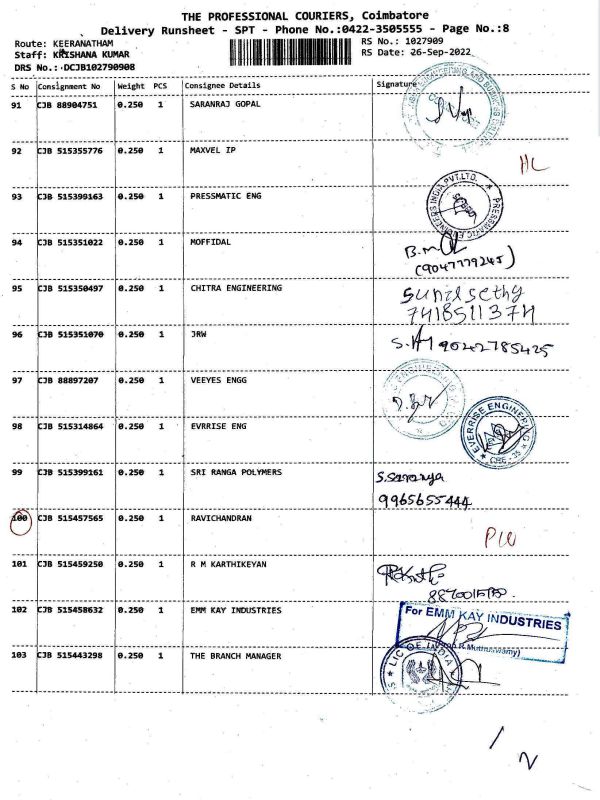 THE PROFESSIONAL COURIERS, Coimbatore
Delivery Runsheet - SPT - Phone No.:0422-3505555 - Page No.:8
Route: KEERANATHAM
RS No.: 1027909
Staff: KRISHANA KUMAR
RS Date: 26-Sep-2022
DRS No.: DCJB102790908
S No Consignment No Weight PCS Consignee Details Signature
91 CJB 88904751 0.250 1 SARANRAJ GOPAL
92 CJB 515355776 0.250 1 MAXVEL IP
HL
93 CJB 515399163 0.250 1 PRESSMATIC ENG
94 CJB 515351022 0.250 1 MOFFIDAL
B.M
(9047779245)
95 CJB 515350497 0.250 1 CHITRA ENGINEERING
Sunilsethy
7418511374
96 CJB 515351070 0.250 1 JRW
9042785425
97 CJB 88897207 0.250 1 VEEYES ENGG
98 CJB 515314864 0.250 1 EVRRISE ENG
EVERRISE ENGINEERING
CBE - 35
99 CJB 515399161 0.250 1 SRI RANGA POLYMERS
S.Saranya
9965655444
100 CJB 515457565 0.250 1 RAVICHANDRAN
101 CJB 515459250 0.250 1 R M KARTHIKEYAN
102 CJB 515458632 0.250 1 EMM KAY INDUSTRIES
For EMM KAY INDUSTRIES
103 CJB 515443298 0.250 1 THE BRANCH MANAGER
LIC OF INDIA